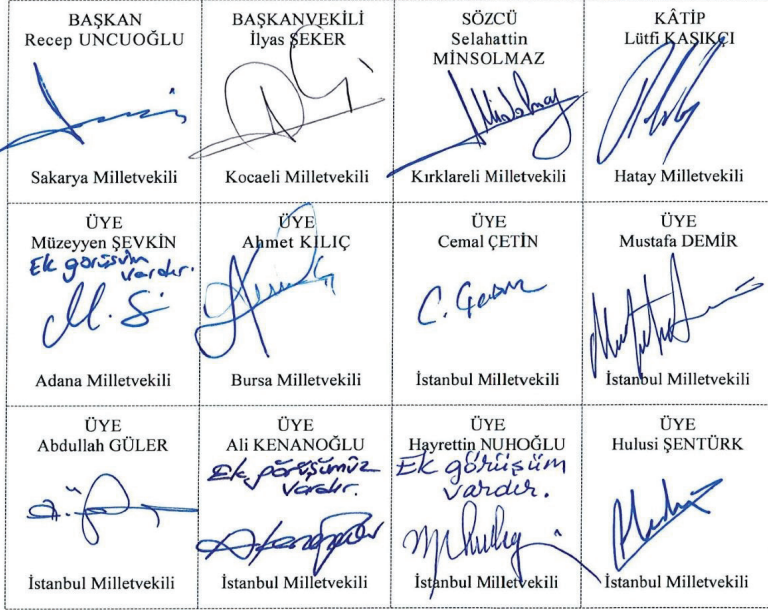 BAŞKAN
Recep UNCUOĞLU
Sakarya Milletvekili
BAŞKANVEKİLİ
İlyas ŞEKER
Kocaeli Milletvekili
SÖZCÜ
Selahattin
MİNSOLMAZ
Kırklareli Milletvekili
KÂTİP
Lütfi KAŞIKÇI
Hatay Milletvekili
ÜYE
Müzeyyen ŞEVKİN
Ek görüşüm
vardır.
M. Ş
Adana Milletvekili
ÜYE
Ahmet KILIÇ
Bursa Milletvekili
ÜYE
Cemal ÇETİN
C. Çetin
İstanbul Milletvekili
ÜYE
Mustafa DEMİR
İstanbul Milletvekili
ÜYE
Abdullah GÜLER
İstanbul Milletvekili
ÜYE
Ali KENANOĞLU
Ek görüşümüz
vardır.
İstanbul Milletvekili
ÜYE
Hayrettin NUHOĞLU
Ek görüşüm
vardır.
İstanbul Milletvekili
ÜYE
Hulusi ŞENTÜRK
İstanbul Milletvekili